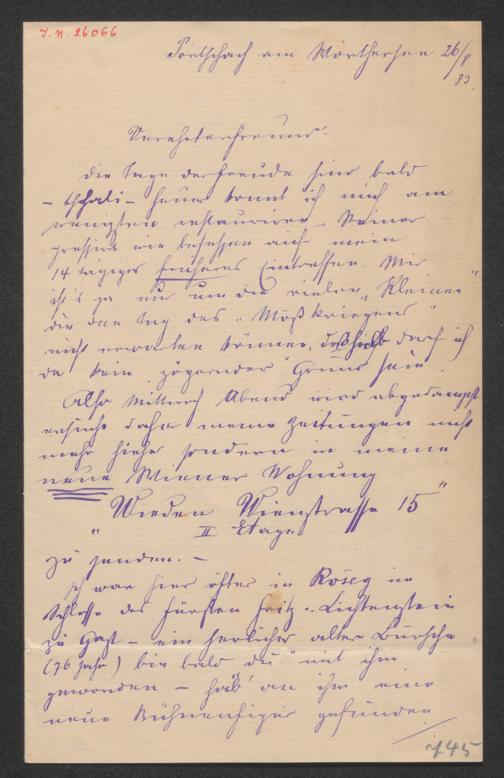 J. N. 26066
Pörtschach am Wörthersee 26/8
83.
Verehrter Freund!
Die Tage der Freude sind bald
heuer konnt ich mich am
wenigsten restauriren. Steiner
pressirt wie besessen auf mein
14 tägiges früheres Eintreffen. Mir
ist's ja nur um die vielen „Kleinen"
die den Tag des „Mößkriegens"
nicht erwarten können, deßhalb darf ich
da kein zögernder sein.
Also Mittwoch Abend wird abgedampft
ersuche daher meine Zeitungen nicht
mehr hieher sondern in meine
neue Wiener Wohnung
„Wieden Wienstrasse 15"
II Etage
zu senden. –
Ich war hier öfter in Röseg im
Schlosse des Fürsten Fritz Lichtenstein
zu Gast – ein herlicher alter Bursche
(76 Jahr) bin bald „du" mit ihm
geworden – hab' an ihm eine
neue Bühnenfigur gefunden
745